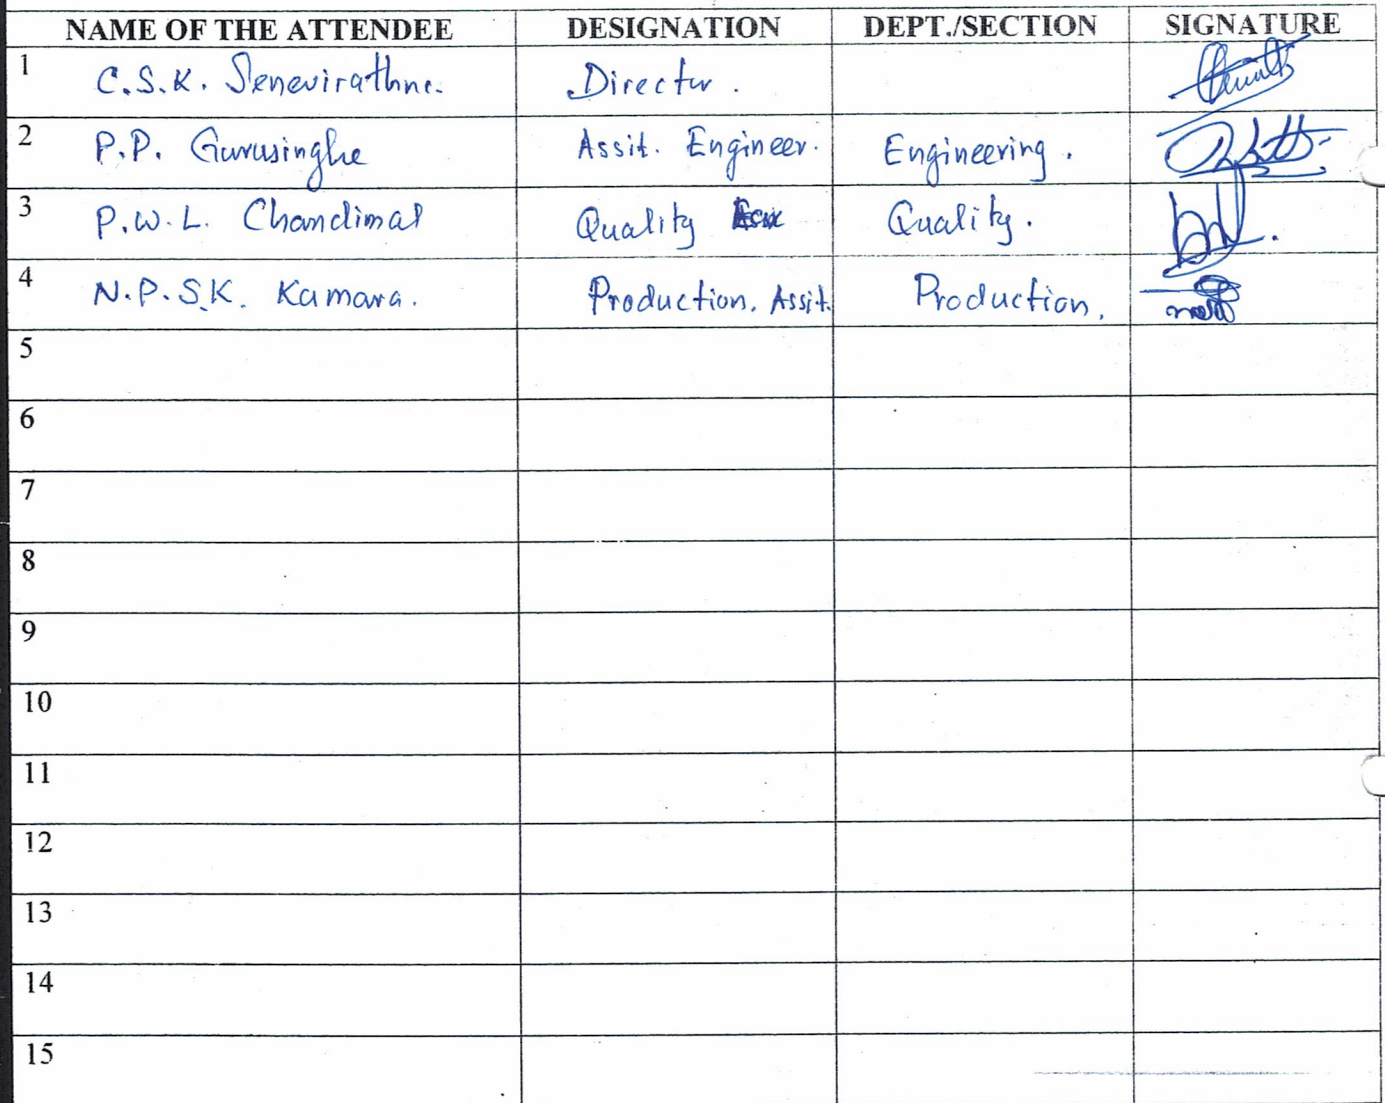 NAME OF THE ATTENDEE DESIGNATION DEPT./SECTION SIGNATURE
1 C.S.K. Senevirathne. Director.
2 P.P. Gurusinghe Assit. Engineer. Engineering.
3 P.W.L. Chandimal Quality Quality.
4 N.P.S.K. Kamara. Production. Assit. Production.
5
6
7
8
9
10
11
12
13
14
15